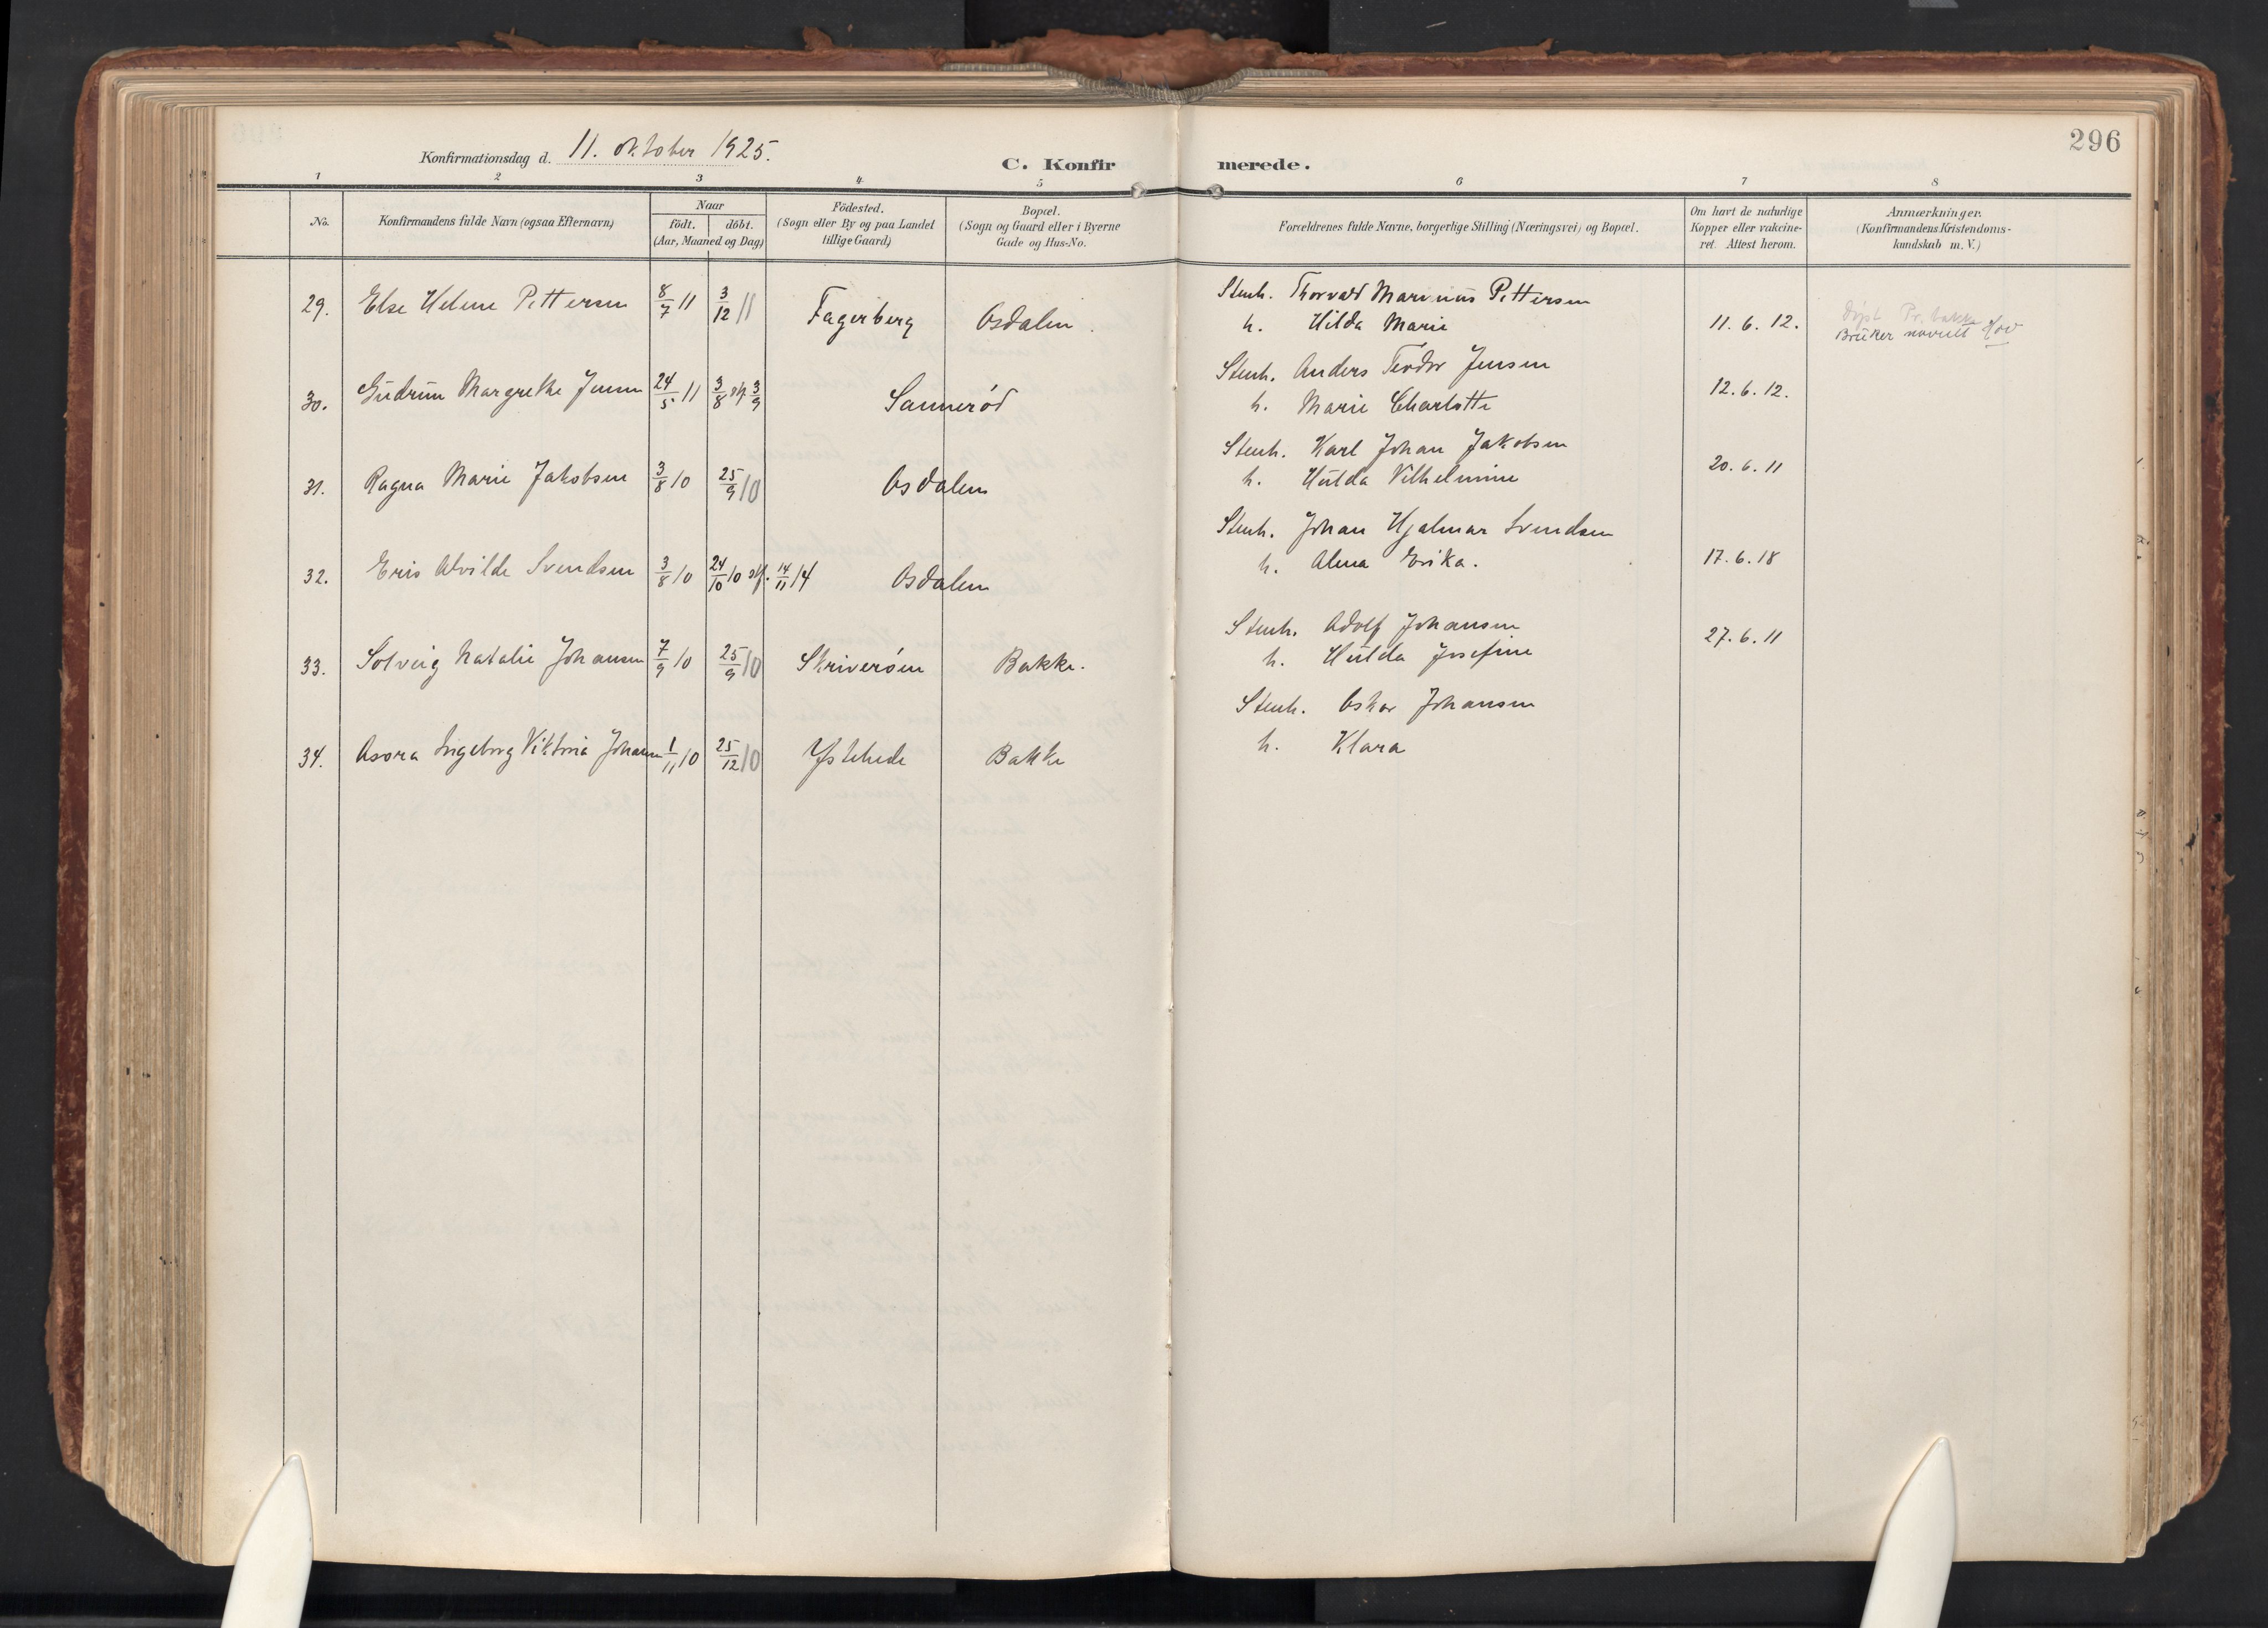 296
Konfirmationsdag d. 11. oktober 1925.
C. Konfirmerede.
1 2 3 4 5 6 7 8
No.
Konfirmandens fulde Navn (ogsaa Efternavn)
Naar
født. døbt.
(Aar, Maaned og Dag)
Fødested.
(Sogn eller By og paa Landet
tillige Gaard)
Bopæl.
(Sogn og Gaard eller i Byerne
Gade og Hus-No.
Forældrenes fulde Navne, borgerlige Stilling (Næringsvei) og Bopæl.
Om havt de naturlige
Kopper eller vakcine-
ret. Attest herom.
Anmærkninger.
(Konfirmandens Kristendoms-
kundskab m. V.)
29. Else Helene Pettersen 8/7 11 3/12 11 Fagerberg Osdalen. Stenh. Thorvald Marinius Pettersen
h. Hilda Marie 11. 6. 12.
Bruker navnet Hov
30. Gudrun Margrethe Jensen 24/5 11 3/8 stf 3/9 Sannerød Stenh. Anders Teodor Jensen
h. Marie Charlotte 12. 6. 12.
31. Ragna Marie Jakobsen 3/8 10 25/9 10 Osdalen Stenh. Karl Johan Jakobsen
h. Hulda Vilhelmine 20. 6. 11
32. Eris Alvilde Svendsen 3/8 10 24/10 10 stf. 14/11 14 Osdalen Stenh. Johan Hjalmar Svendsen
h. Alma Erika. 17. 6. 18
33. Solveig Natalie Johansen 7/9 10 25/9 10 Skriverøen Bakke. Stenh. Adolf Johansen
h. Hulda Josefine 27. 6. 11
34. Asora Ingeborg Viktoria Johansen 1/11 10 25/12 10 Ystehede Bakke Stenh. Oskar Johansen
h. Klara